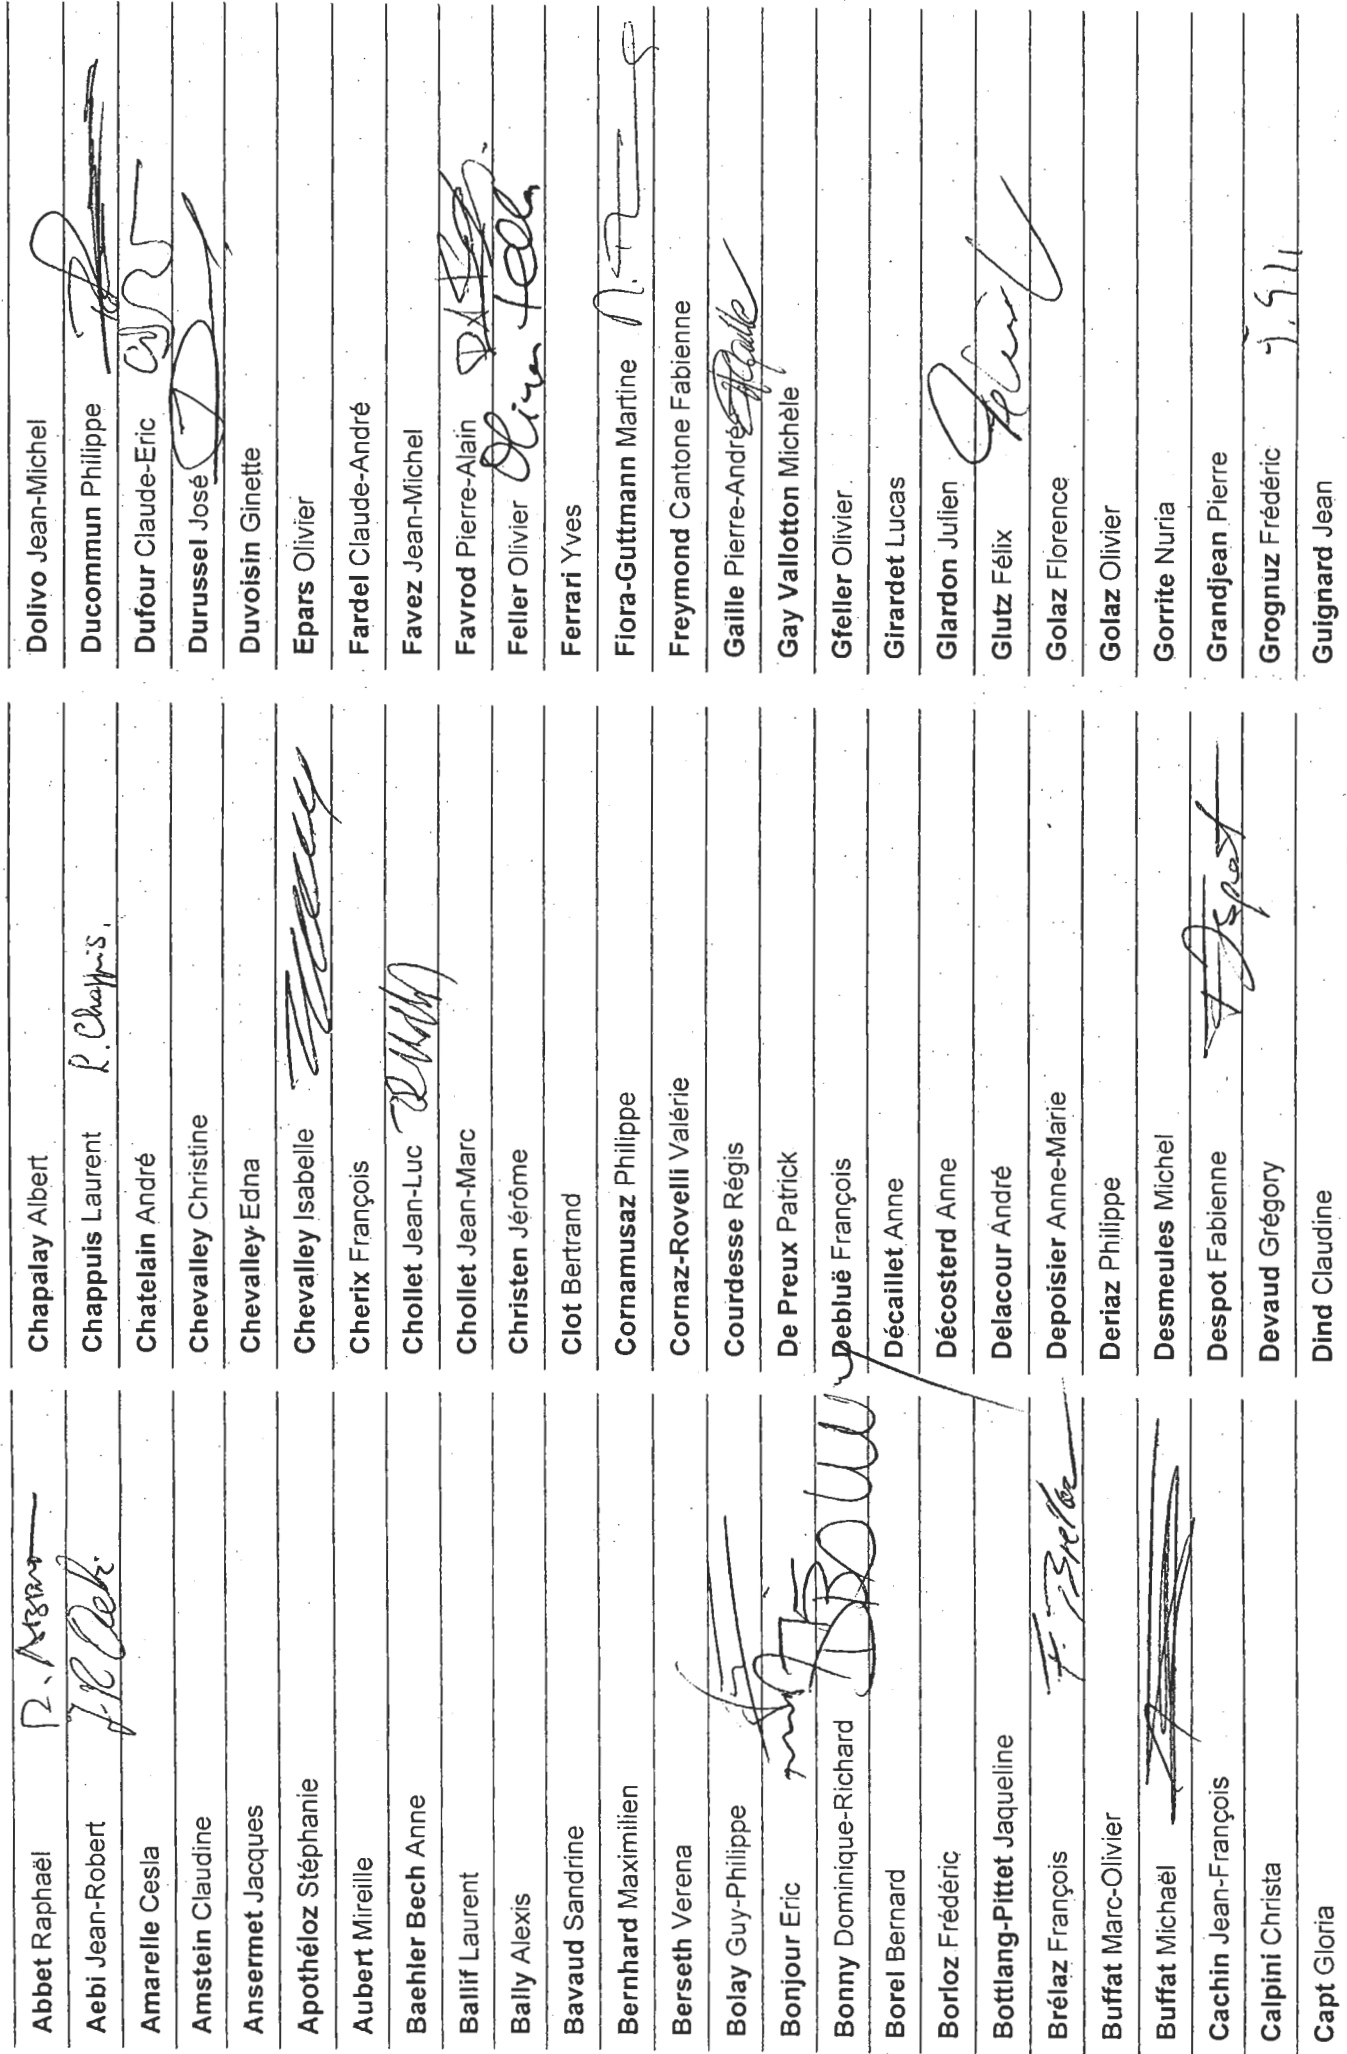 Abbet Raphaël R. Abbet
Aebi Jean-Robert J-R Aebi
Amarelle Cesla
Amstein Claudine
Ansermet Jacques
Apothéloz Stéphanie
Aubert Mireille
Baehler Bech Anne
Ballif Laurent
Bally Alexis
Bavaud Sandrine
Bernhard Maximilien
Berseth Verena
Bolay Guy-Philippe
Bonjour Eric
Bonny Dominique-Richard
Borel Bernard
Borloz Frédéric
Bottlang-Pittet Jaqueline
Brélaz François
Buffat Marc-Olivier
Buffat Michaël
Cachin Jean-François
Calpini Christa
Capt Gloria
Chapalay Albert
Chappuis Laurent L. Chappuis.
Chatelain André
Chevalley Christine
Chevalley Edna
Chevalley Isabelle
Cherix François
Chollet Jean-Luc
Chollet Jean-Marc
Christen Jérôme
Clot Bertrand
Cornamusaz Philippe
Cornaz-Rovelli Valérie
Courdesse Régis
De Preux Patrick
Debluë François
Décaillet Anne
Décosterd Anne
Delacour André
Depoisier Anne-Marie
Deriaz Philippe
Desmeules Michel
Despot Fabienne Despot
Devaud Grégory
Dind Claudine
Dolivo Jean-Michel
Ducommun Philippe
Dufour Claude-Eric
Durussel José
Duvoisin Ginette
Epars Olivier
Fardel Claude-André
Favez Jean-Michel
Favrod Pierre-Alain
Feller Olivier Olivier Feller
Ferrari Yves
Fiora-Guttmann Martine
Freymond Cantone Fabienne
Gaille Pierre-André PAGaille
Gay Vallotton Michèle
Gfeller Olivier
Girardet Lucas
Glardon Julien
Glutz Félix
Golaz Florence
Golaz Olivier
Gorrite Nuria
Grandjean Pierre
Grognuz Frédéric
Guignard Jean